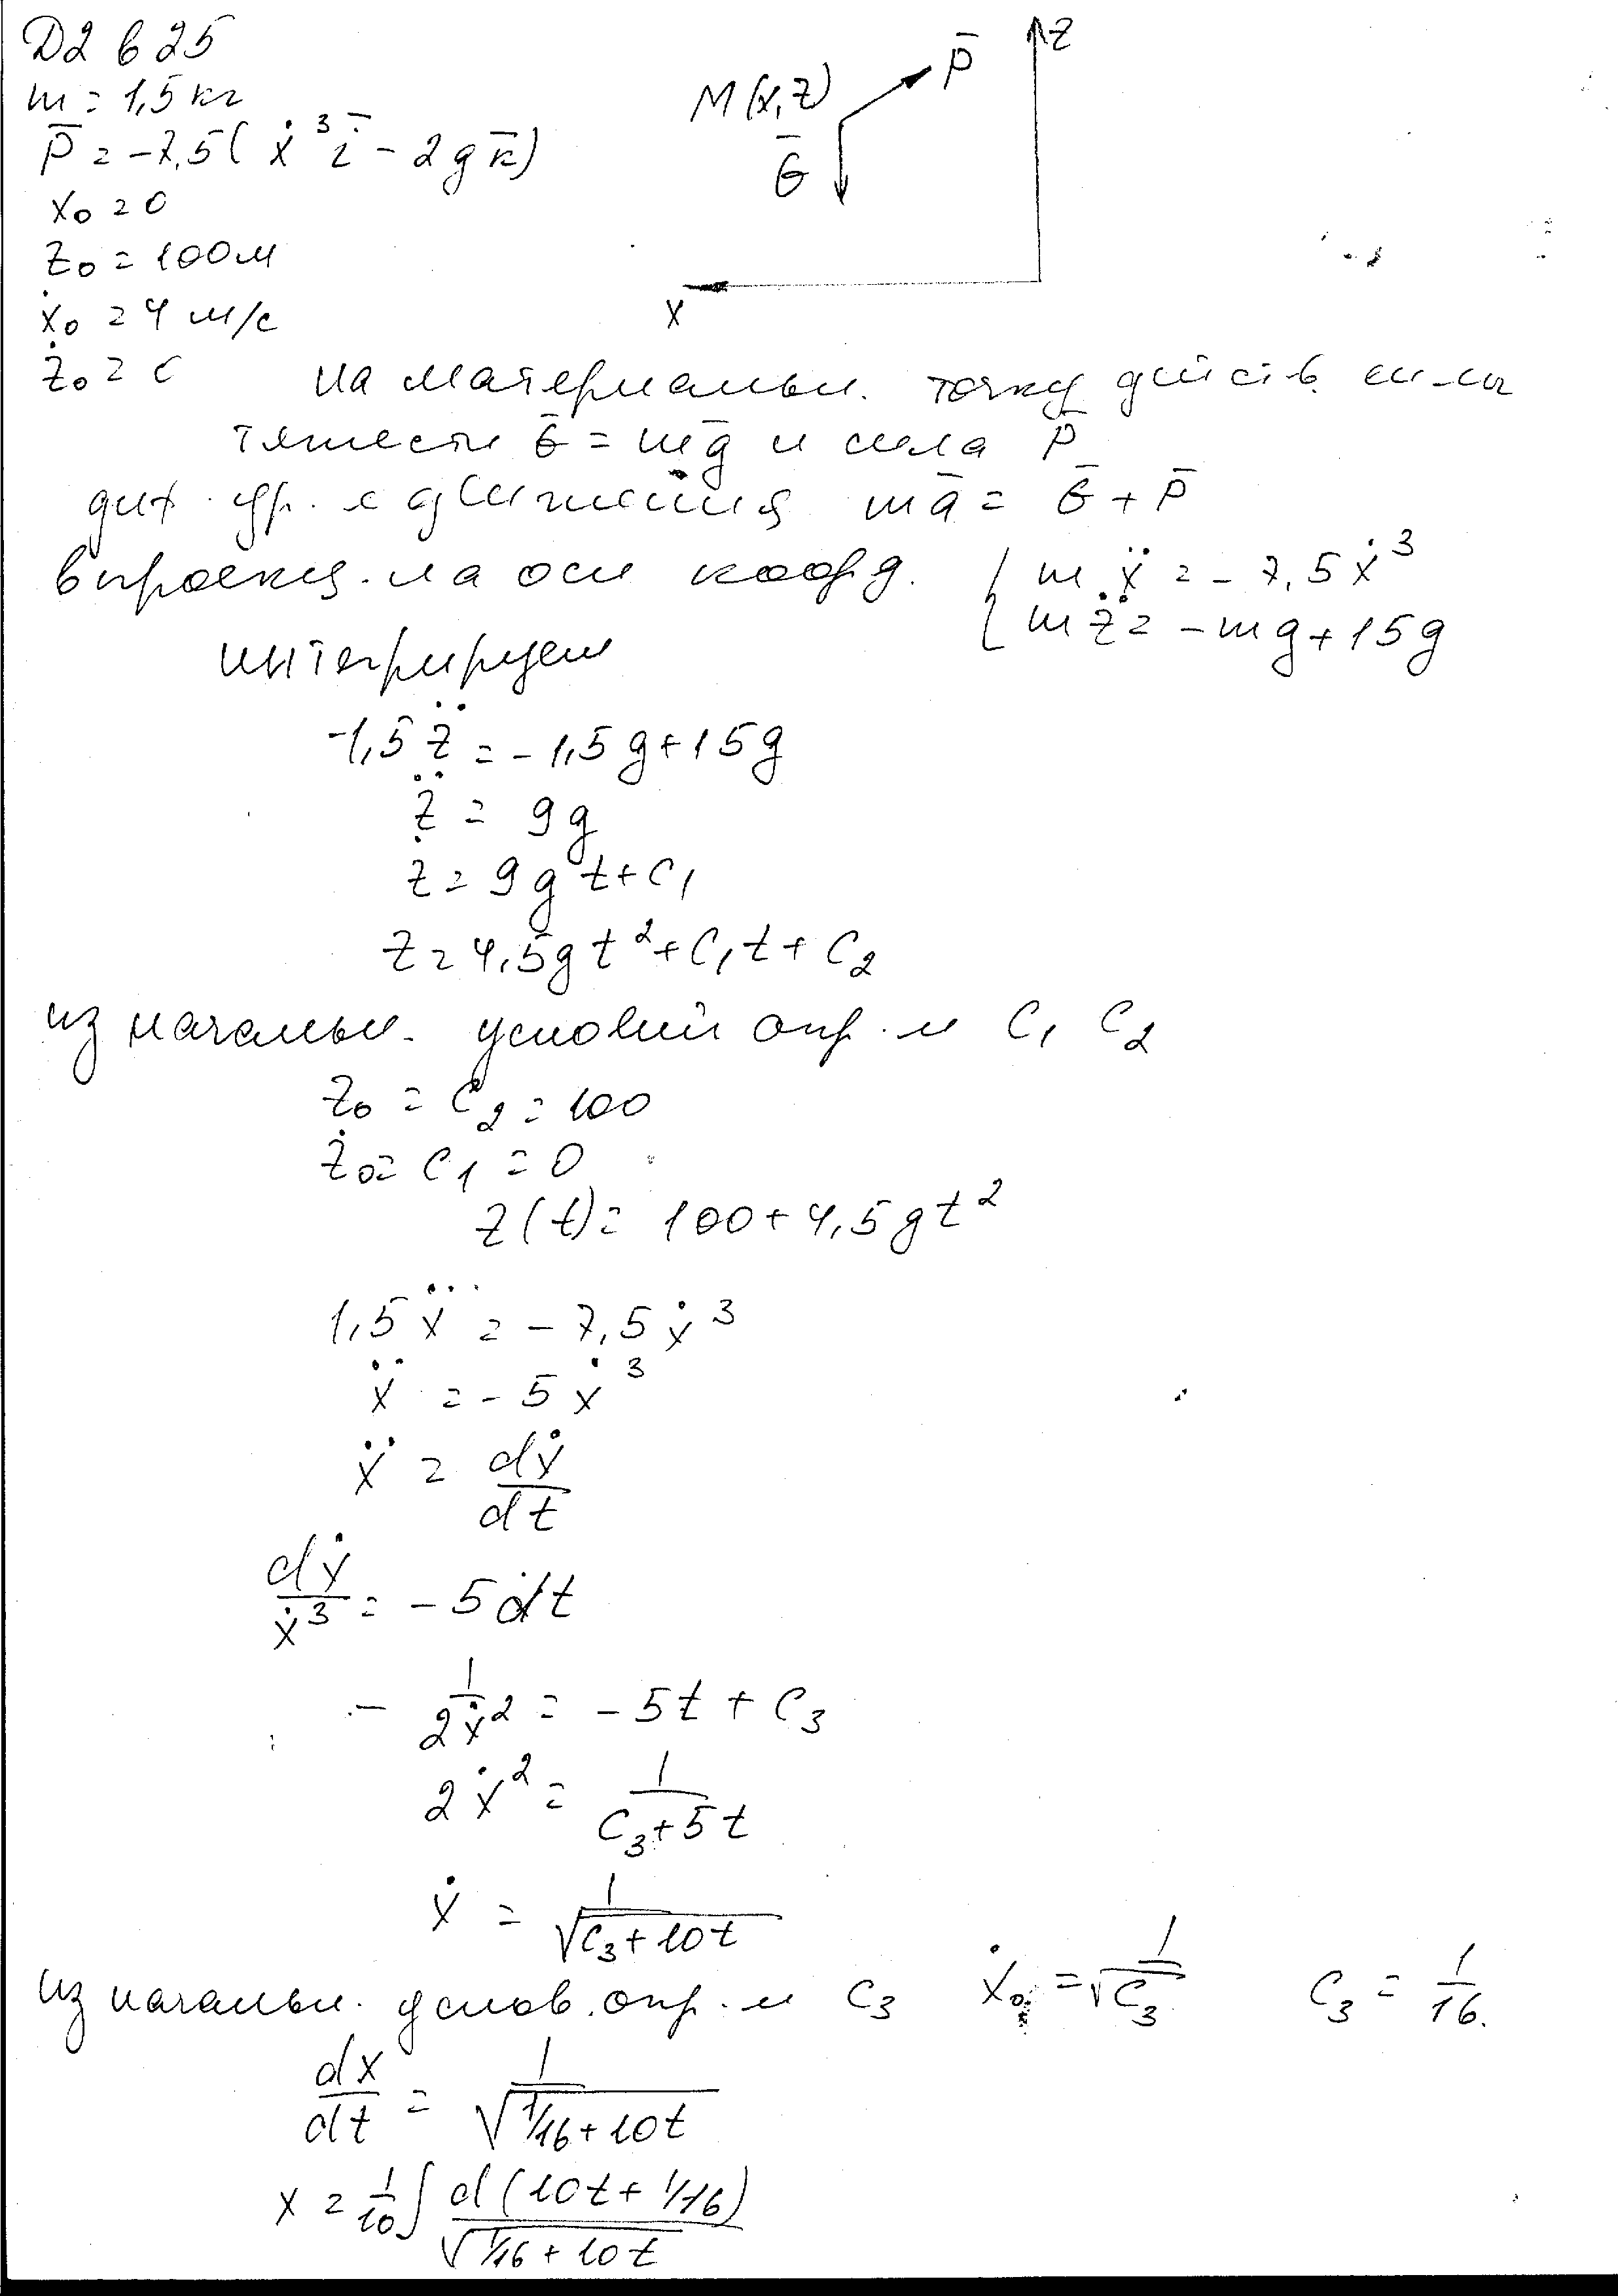 Д2 в 25
m = 1,5 кг
P̄ = -7,5(ẋ³ī - 2gk̄)
x₀ = 0
z₀ = 100м
ẋ₀ = 4 м/с
ż₀ = 0
z
P̄
M(x,z)
Ḡ
x
на материальн. точку действ. сила
тяжести Ḡ = mḡ и сила P̄
диф. ур.-е движения mā = Ḡ + P̄
в проекц. на оси коорд. { mẍ = -7,5ẋ³
mz̈ = -mg + 15g
интегрируем
-1,5z̈ = -1,5g + 15g
z̈ = 9g
ż = 9gt + C₁
z = 4,5gt² + C₁t + C₂
из начальн. условий опр.-м C₁ C₂
z₀ = C₂ = 100
ż₀ = C₁ = 0
z(t) = 100 + 4,5gt²
1,5ẍ = -7,5ẋ³
ẍ = -5ẋ³
ẍ = dẋ/dt
dẋ/ẋ³ = -5dt
- 1/2ẋ² = -5t + C₃
2ẋ² = 1/(C₃ + 5t)
ẋ = 1/√(C₃ + 10t)
из начальн. услов. опр.-м C₃ ẋ₀ = 1/√C₃ C₃ = 1/16.
dx/dt = 1/√(1/16 + 10t)
x = 1/10 ∫ d(10t + 1/16)/√(1/16 + 10t)